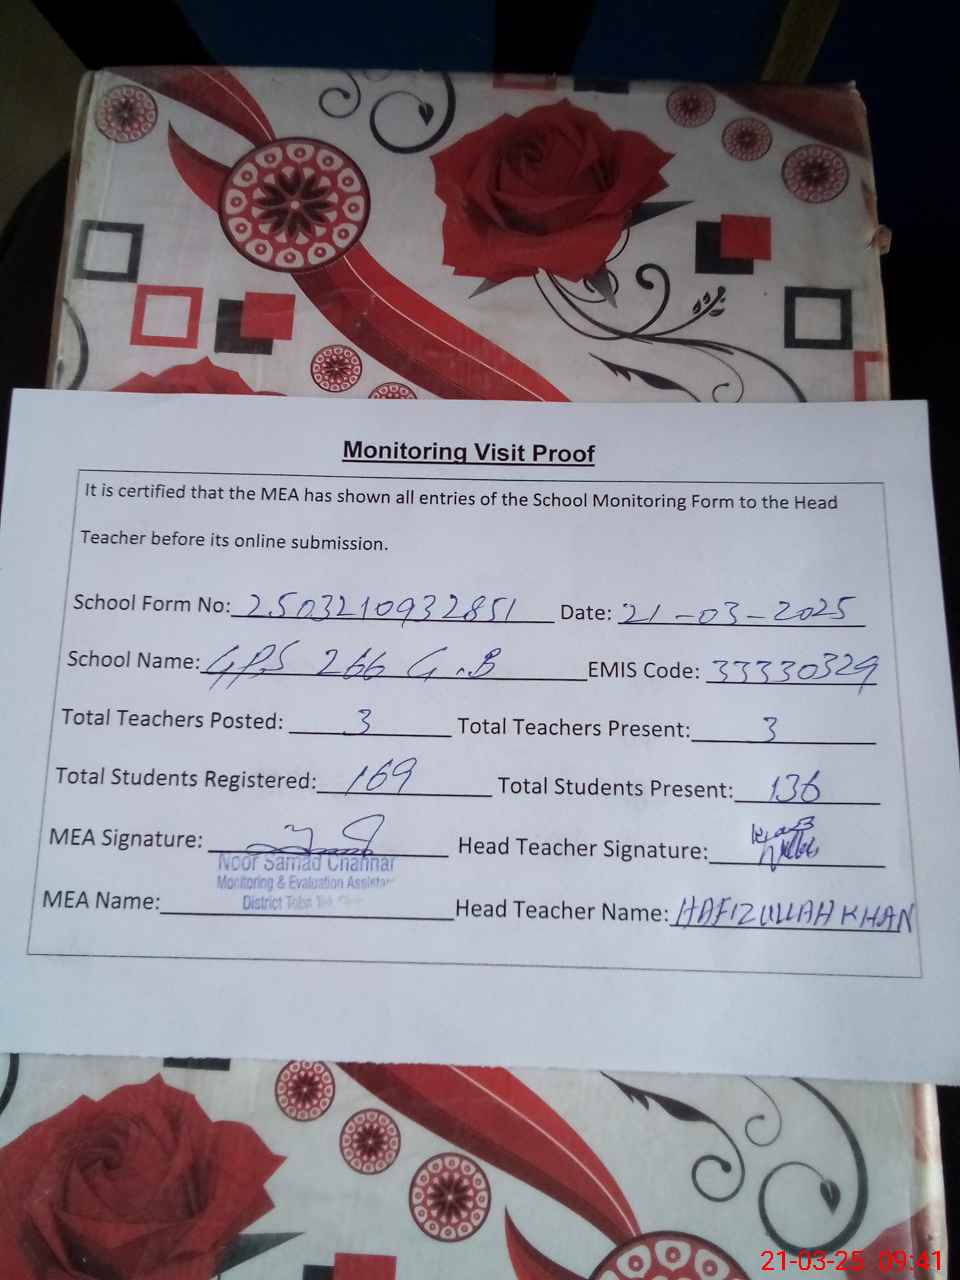 Monitoring Visit Proof
It is certified that the MEA has shown all entries of the School Monitoring Form to the Head
Teacher before its online submission.
School Form No: 2503210932851 Date: 21-03-2025
School Name: GPS 266 G.B EMIS Code: 33330329
Total Teachers Posted: 3 Total Teachers Present: 3
Total Students Registered: 169 Total Students Present: 136
MEA Signature: Head Teacher Signature:
Noor Samad Channar
Monitoring & Evaluation Assistant
District Toba Tek
MEA Name: Head Teacher Name: HAFIZULLAH KHAN
21-03-25 09:41